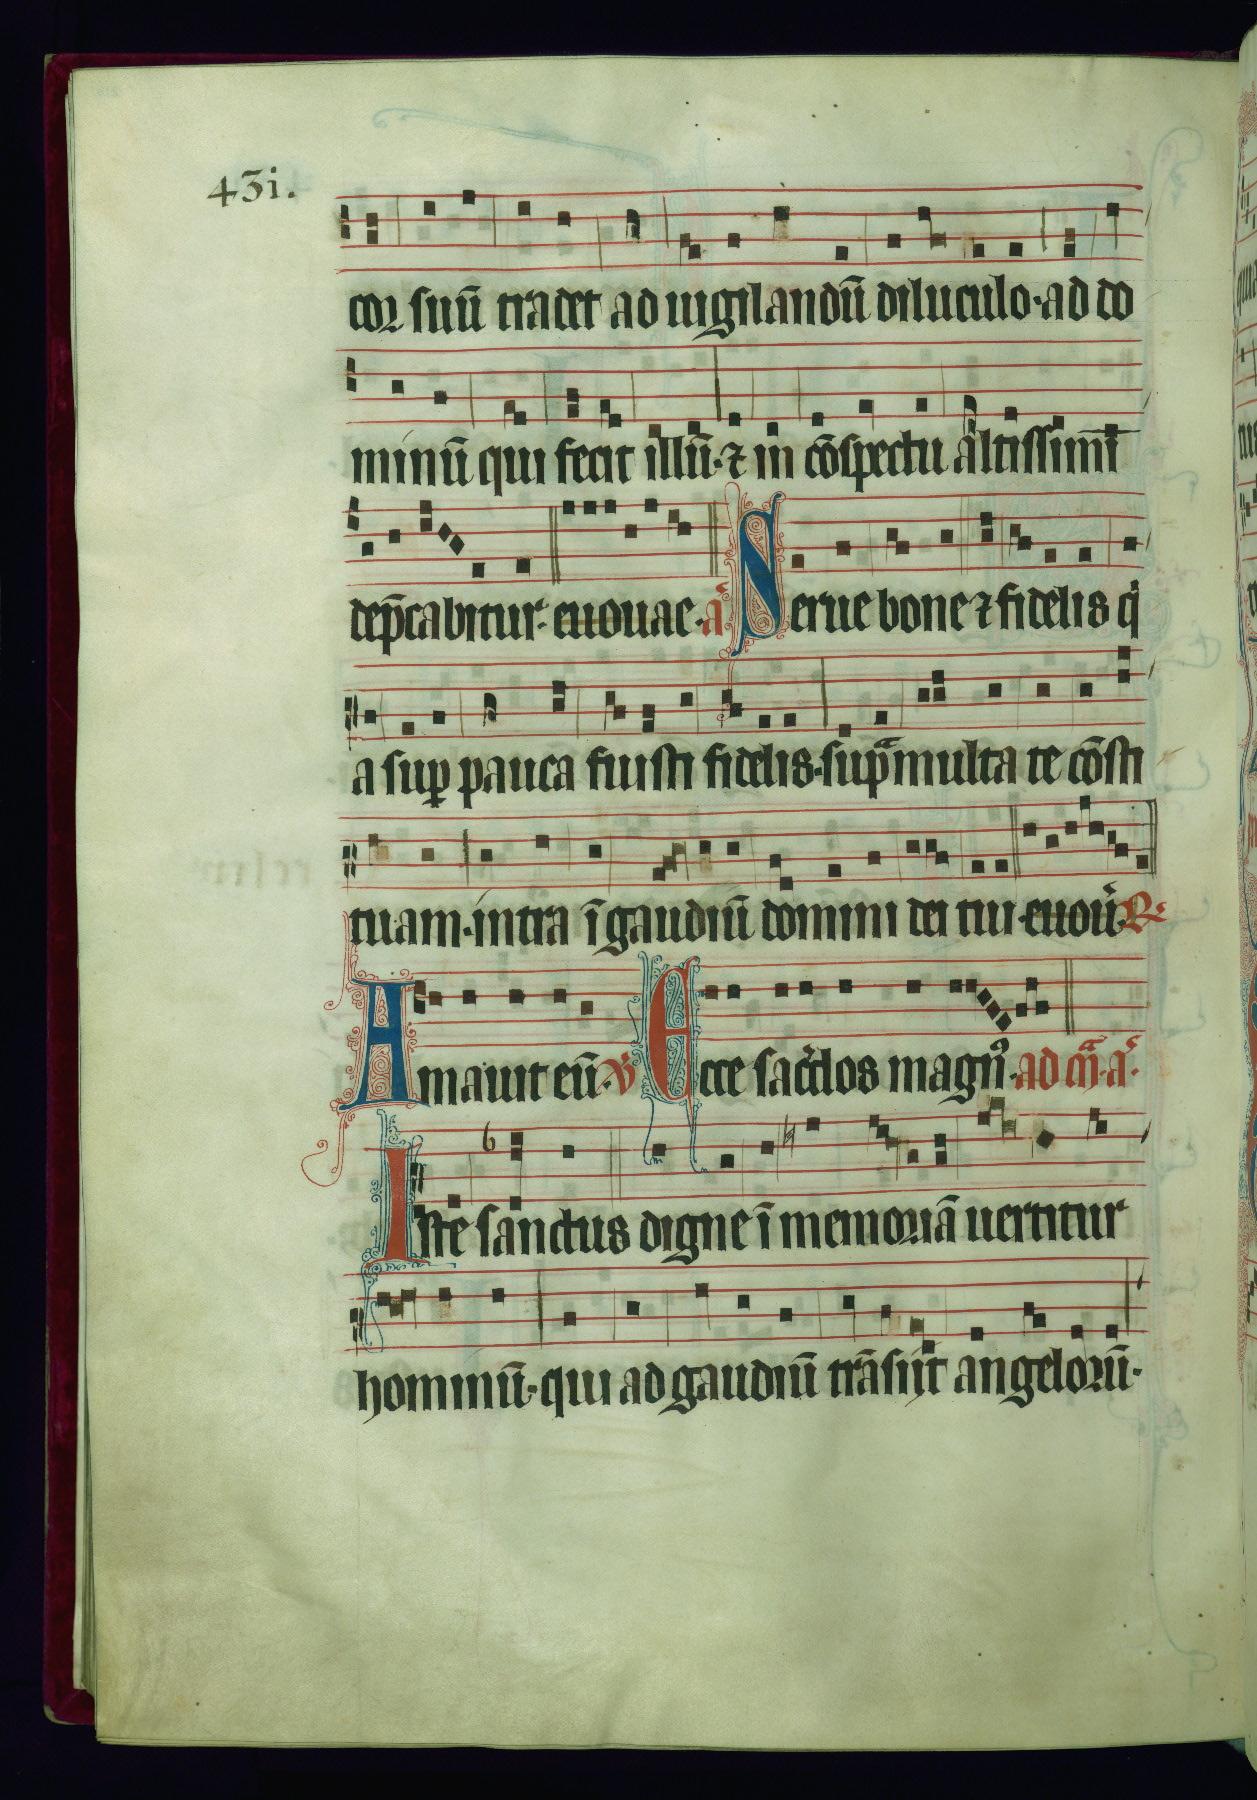 43i.
cor suū tradet ad uigilandū diluculo·ad do
minū qui fecit illū·⁊ in cōspectu altissimi
dep̄cabitur·euouae·a᷑ Serue bone ⁊ fidelis q̇
a suꝑ pauca fuisti fidelis·sup̄ multa te cōsti
tuam·intra ī gaudiū domini dei tui·euou̅·℞·
Amauit eū·℣ Ecce sac̄dos magnꝰ·ad m̄·a᷑·
Iste sanctus digne ī memoriā uertitur
hominū·qui ad gaudiū trāsiit angelorū·